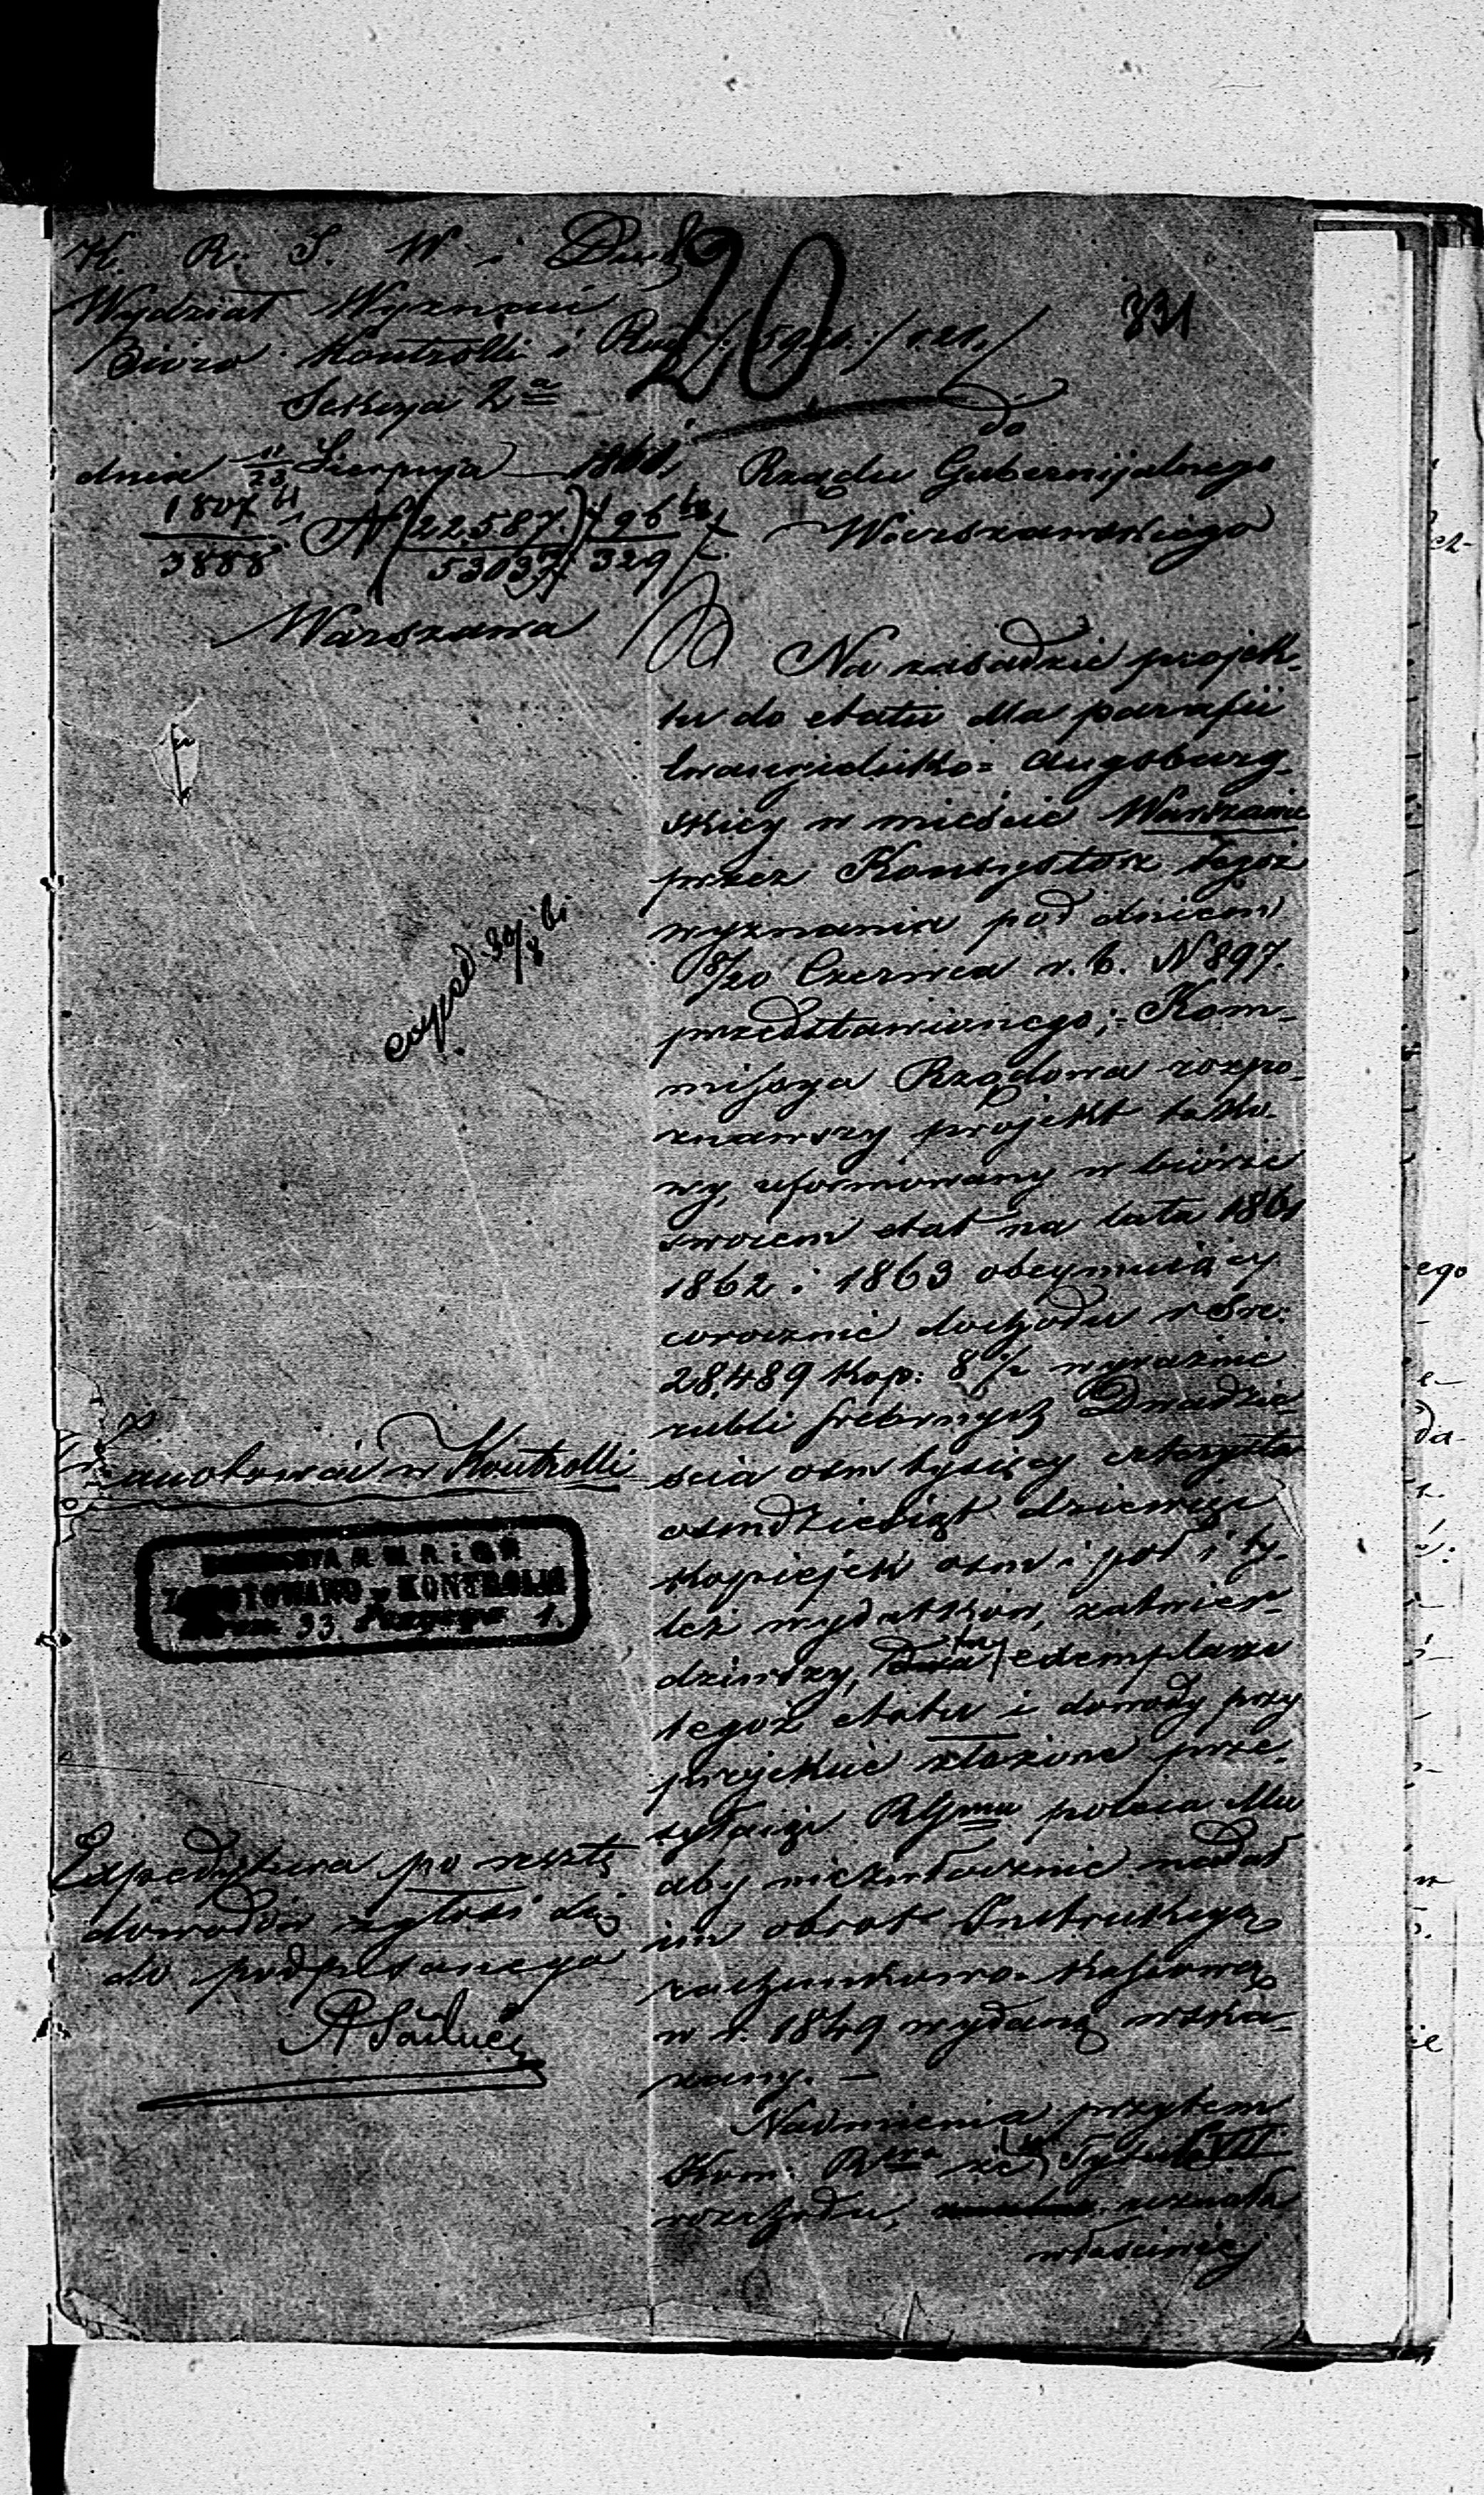 K. R. S. W i Duch
20
331
Wydział Wyznań
Biuro Kontrolli i Rach
Sekcya 2a
dnia 11/23 Sierpnia 1861
1807/3888 N 22587/53037 96/329
Warszawa
do
Rządu Gubernijalnego
Warszawskiego
Na zasadzie projek-
tu do etatu dla parafii
Ewangielicko= Augsburg-
skiey w mieście Warszawie
przez Konsystorz tegoż
wyznania pod dniem
8/20 Czerwca r. b. N 897.
przedstawionego; - Kom-
missya Rządowa rozpo-
znawszy projekt tako-
wy, uformowany w biórze
swoiem etat na lata 1861
1862 i 1863 obeymuiący
corocznie dochodu rSre:
28,489 kop: 8 1/2 wyraźnie
rubli srebrnych Dwadzie-
ścia ośm tysięcy czterysta
ośmdziesiąt dziewięć
kopiejek ośm i pół i ty-
leż wydatków, zatwier-
dziwszy, dwa exemplarze
tegoż etatu i dowody przy
projekcie złożone prze-
syłaiąc RGmu poleca Mu
aby niezwłocznie nadał
im obrot Instrukcyą
rachunkowo-kassową
w r. 1849 wydaną wska-
zany. -
Nadmienia przytem
Kom: Rwa że w Tytule VII
rozchodu, uznała
właściwiej
exped 30/8 61
Zanotować w Kontrolli
ZANOTOWANO w KONTROLLI
33 1.
Expedytura po resztę
dowodów zgłosi się
do podpisanego